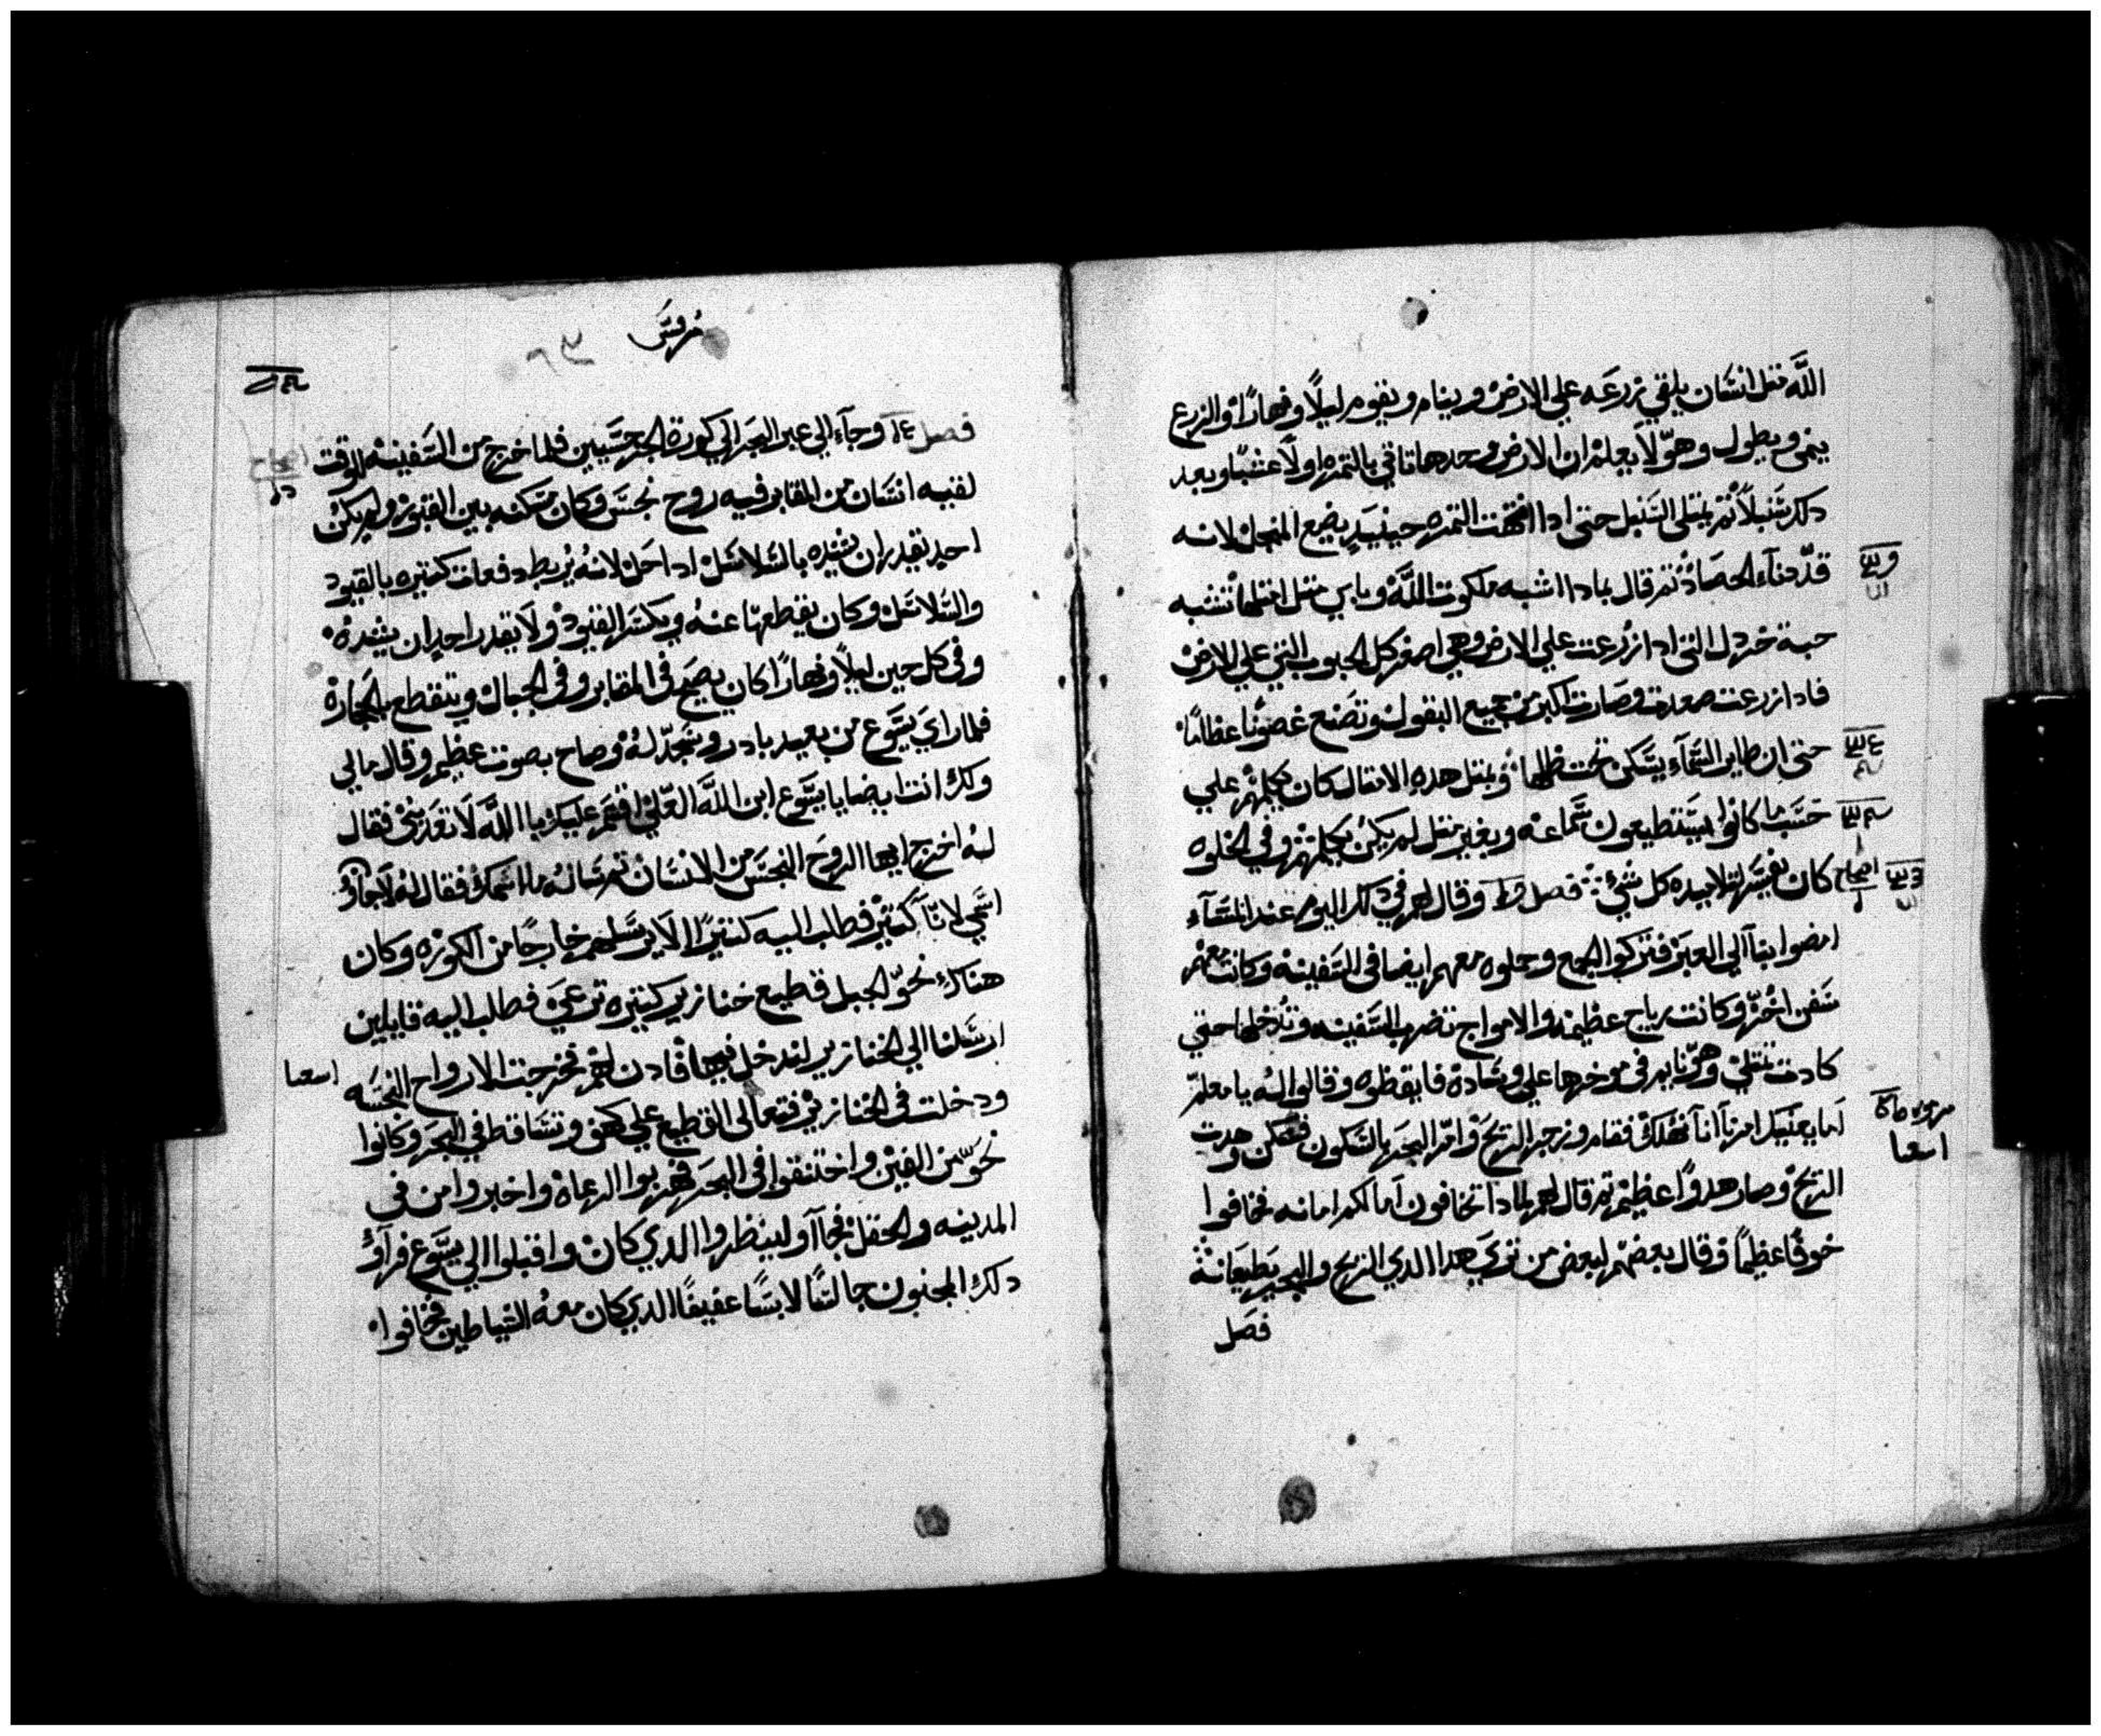 الله مثل انسان يلقي زرعه علي الارض وينام ويقوم ليلاً ونهارًا والزرع
ينمي ويطول وهو لا يعلم ان الارض وحدها تاتي بالتمره اولاً عشبًا وبعد
دلك سنبلاً تم يمتلي السنبل حتي ادا انتهت التمره حينيدٍ يضع المنجل لانه
قد دنآء الحصاد تم قال بمادا اشبه ملكوت الله وباي متل امتلها تشبه
حبة خردل التي ادا زُرعت علي الارض وهي اصغر كل الحبوب التي علي الارض
فادا زرعت صعدت وصارت اكبر من جميع البقول وتصنع غصونًا عظامًا
حتي ان طاير السمآء يسكن تحت ظلها وبمتل هده الامتال كان يكلمهم علي
حسب ما كانوا يستطيعون سماعه وبغير متل لم يكن يكلمهم وفي الخلوه
كان يفسر لتلاميده كل شي فصل وقال لهم في دلك اليوم عند المسآء
امضوا بنا الي العبر فتركوا الجمع وحملوه معهم ايضا في السفينه وكانت معهم
سفن اخر وكانت رياح عظيمه والامواج تضرب السفينه وتدخلها حتي
كادت تمتلي وهو نايم في موخرها علي وساده فايقظوه وقالوا له يا معلم
اما يعنيك امرنا اننا نهلك فقام وزجر الريح وامر البحر بالسكون فسكن وهدت
الريح وصار هدوًا عظيم تم قال لهم لمادا تخافون اما لكم امانه فخافوا
خوفًا عظيمًا وقال بعضهم لبعض من تري هدا الدي الريح والبحر يطيعانه
فصل
مرقس
٦٣
فصل وجآء الي عبر البحر الي كورة الجرجسيين فلما خرج من السفينه للوقت
لقيه انسان من المقابر فيه روح نجس وكان مسكنه بين القبور ولم يكن
احد يقدر ان يشده بالسلاسل ادا حل لانه يُربط دفعات كتيره بالقيود
والسلاسل وكان يقطعها عنه ويكسر القيود ولا يقدر احد ان يشده
وفي كل حين ليلاً ونهارًا كان يصيح في المقابر وفي الجبال ويتقطع بالحجارة
فلما راي يسوع من بعيد بادر وسجد له وصاح بصوت عظيم وقال مالي
ولك انت يضا يا يسوع ابن الله العلي اقسم عليك بالله لا تعدبني فقال
له اخرج ايها الروح النجس من الانسان تم ساله ما اسمك فقال له لاجاون
اسمي لاننا كتير فطلب اليه كتيرًا الا يرسلهم خارجًا من الكوره وكان
هناك نحو الجبل قطيع خنازير كتيره ترعي فطلب اليه قايلين
ارسلنا الي الخنازير لندخل فيها فادن لهم فخرجت الارواح النجسه
ودخلت في الخنازير فتعالي القطيع علي كهف وتساقط في البحر وكانوا
نحو من الفين واختنقوا في البحر فهربوا الرعاة واخبروا من في
المدينه والحقل فجاآو لينظروا الدي كان واقبلوا الي يسوع فراو
دلك المجنون جالسًا لابسًا عفيفًا الدي كان معه الشياطين فخافوا